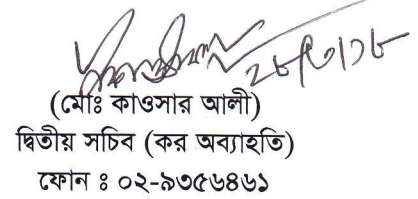 ২৮/৩/১৮
(মোঃ কাওসার আলী)
দ্বিতীয় সচিব (কর অব্যাহতি)
ফোন ঃ ০২-৯৩৫৬৪৬১